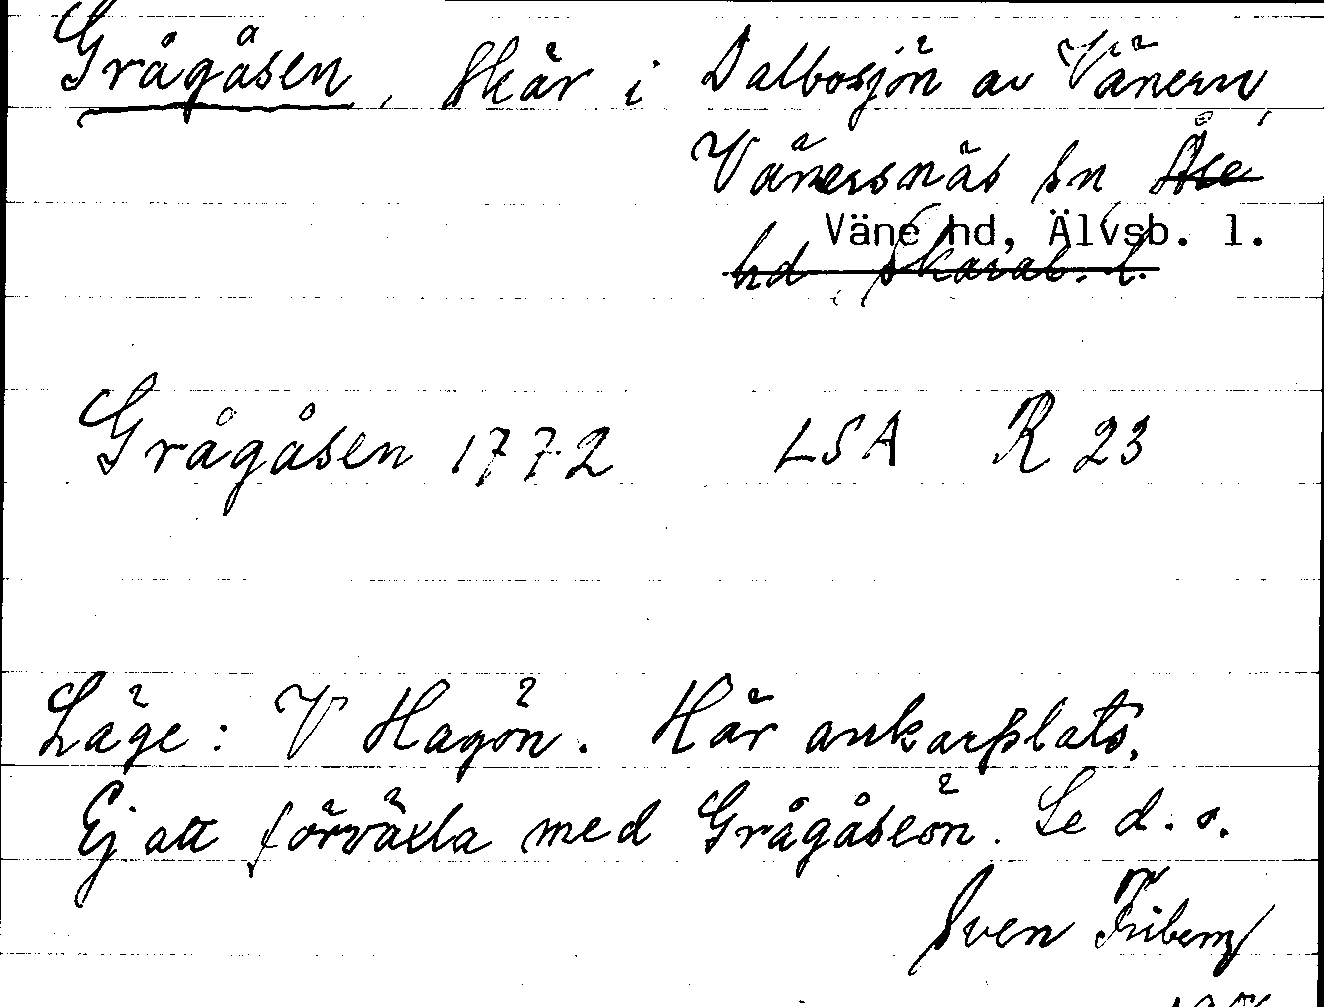 Grågåsen, skär i Dalbosjön av Vänern,
Vänersnäs sn, Åse
Väne hd, Älvsb. l.
hd, Skarab. l.
Grågåsen 1772 LSA R 23
Läge: V Hagön. Här ankarplats.
Ej att förväxla med Grågåseön. Se d. o.
Sven Friberg